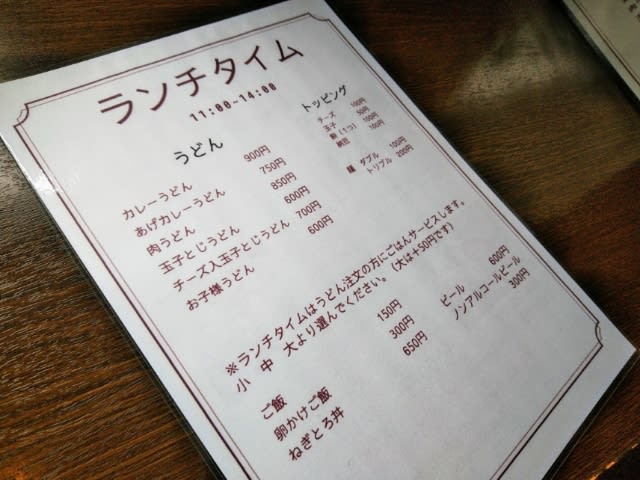 ランチタイム
11:00~14:00
うどん
カレーうどん 900円
あげカレーうどん 750円
肉うどん 850円
玉子とじうどん 600円
チーズ入玉子とじうどん 700円
お子様うどん 600円
トッピング
チーズ 100円
玉子 50円
餅(1つ) 100円
納豆 100円
麺 ダブル 100円
トリプル 200円
※ランチタイムはうどん注文の方にごはんサービスします。
小 中 大より選んでください。(大は+50円です)
ご飯 150円
卵かけご飯 300円
ねぎとろ丼 650円
ビール 600円
ノンアルコールビール 300円